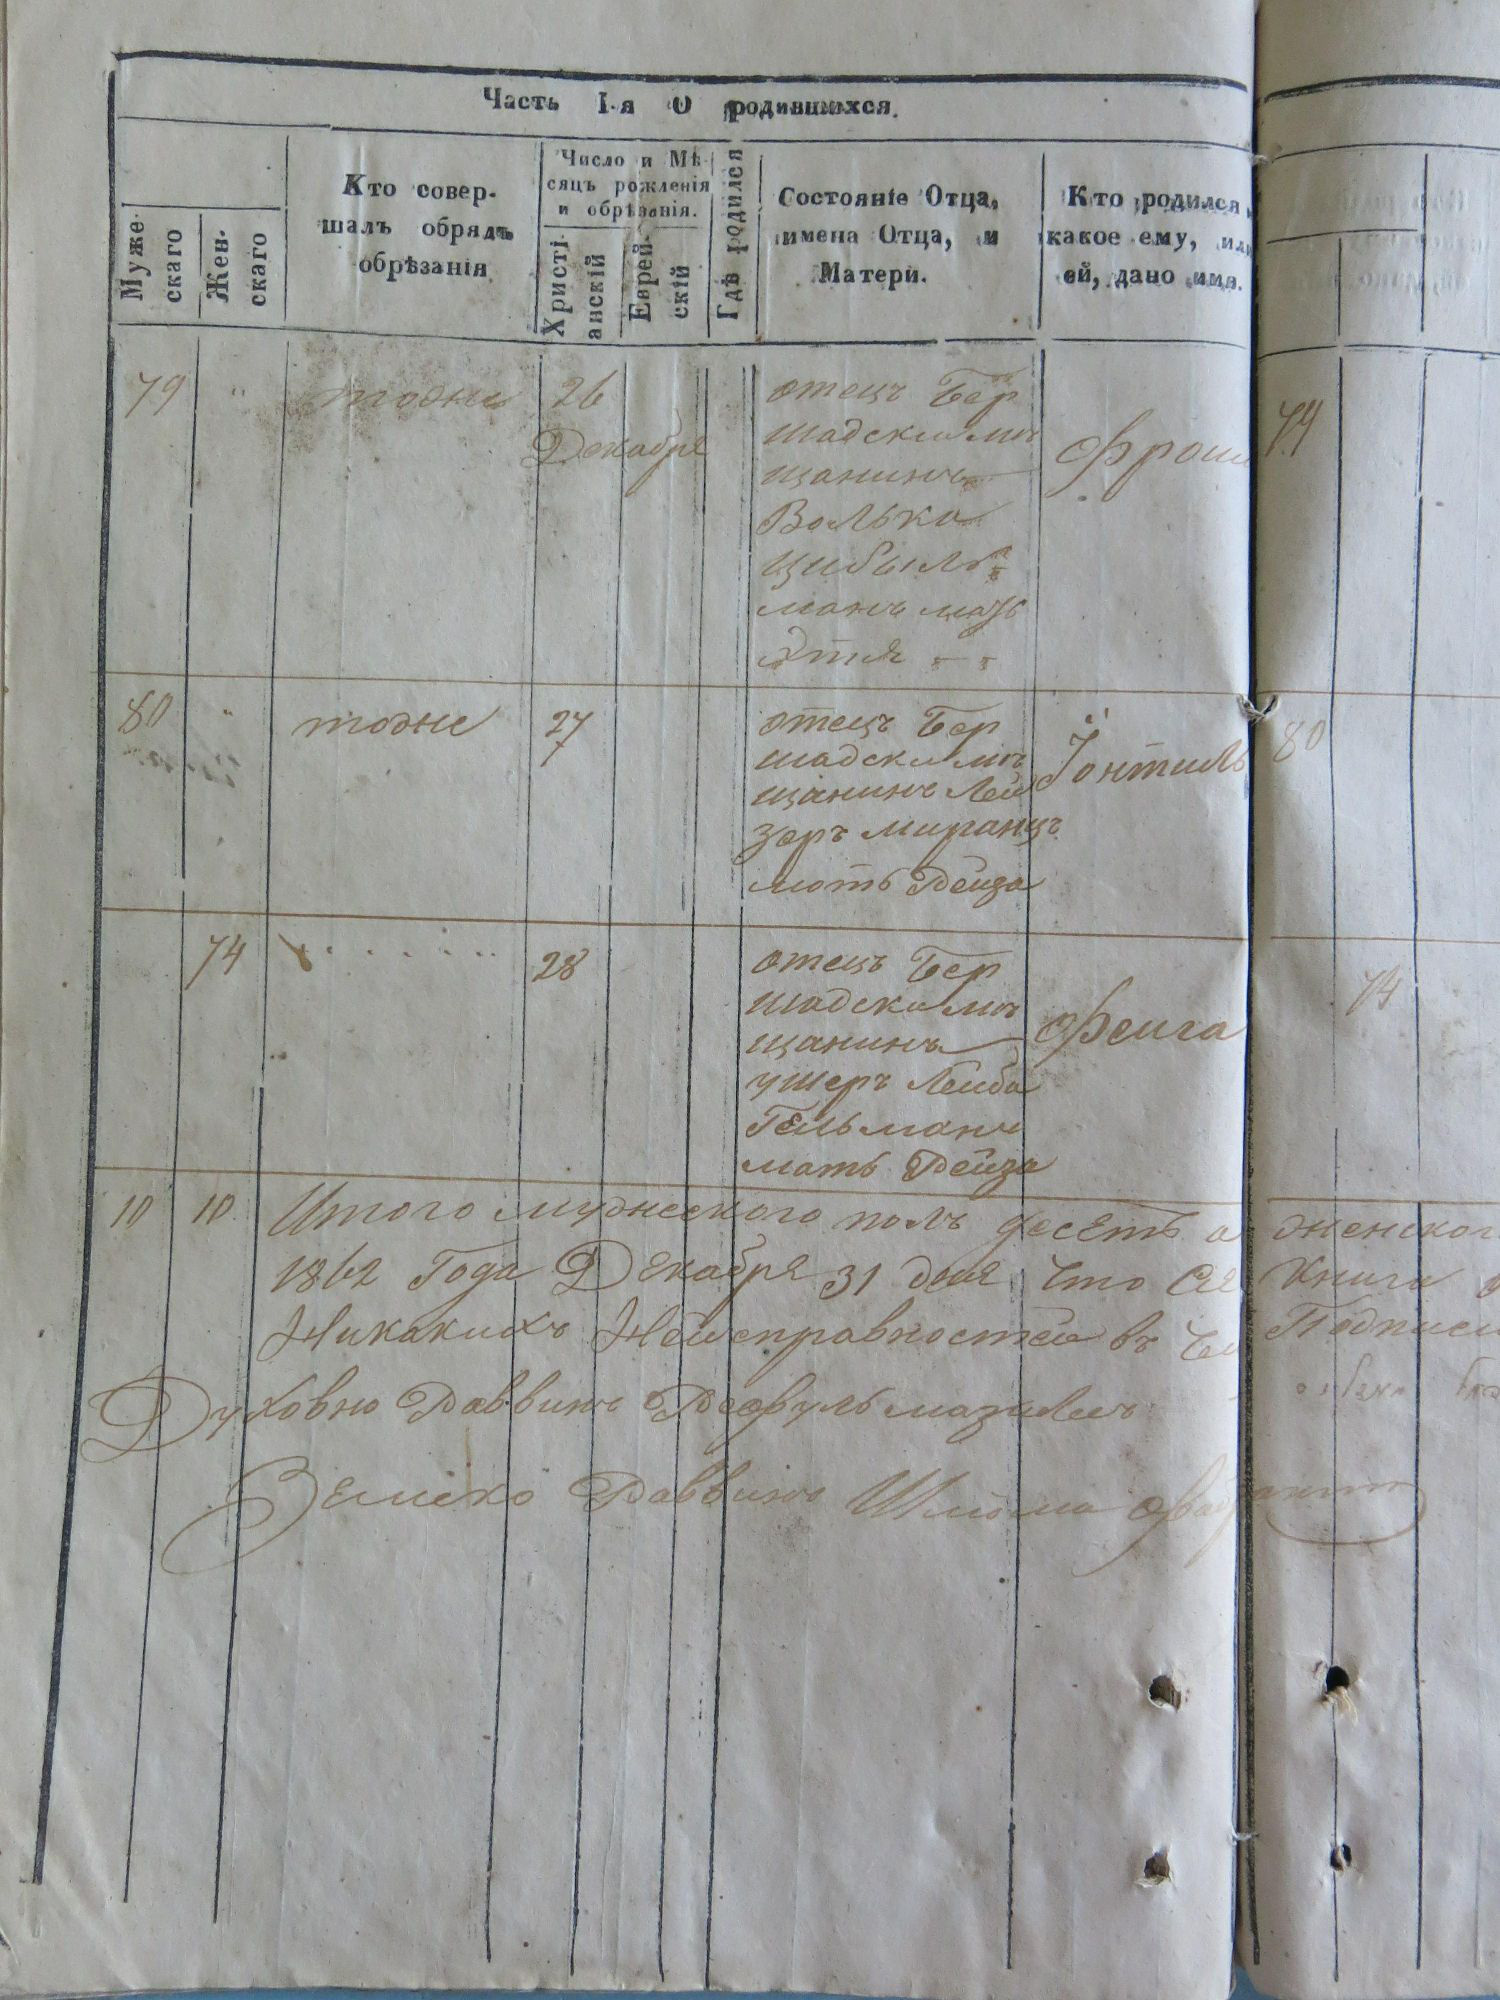 Часть I-я О родившихся.
Муже-
скаго
Жен-
скаго
Кто совер-
шалъ обрядъ
обрѣзанія
Число и Мѣ-
сяцъ рожденія
и обрѣзанія.
Христі-
анскій
Еврей-
скій
Гдѣ родился
Состояніе Отца,
имена Отца, и
Матери.
Кто родился,
какое ему, или
ей, дано имя.
79 тодже 26
Декабря
отецъ Бер
шадски мѣ
щанинъ
Волько
Цибуль
манъ мать
Этя
Фроим
79
80 тодже 27
отецъ Бер
шадски мѣ
щанинъ Лей
зеръ Миранцъ
мать Рейза
Іонтиль
80
74 28
отецъ Бер
шадски мѣ
щанинъ
Ушеръ Лейба
Гельманъ
мать Рейза
Фейга
74
10 10 Итого мужеского полъ десеть а женского
1862 Года Декабря 31 дня что Сія Книга
Никакихъ Неисправностей въ Подписи
Духовно Раввинъ
Раввинъ Шлома